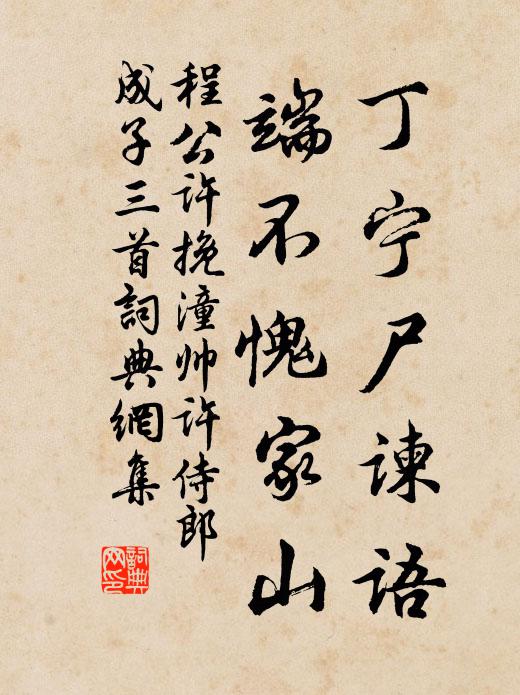 丁宁尸谏语
端不愧家山
程公许挽潼帅许侍郎
成子三首詞典網集
詞典网印